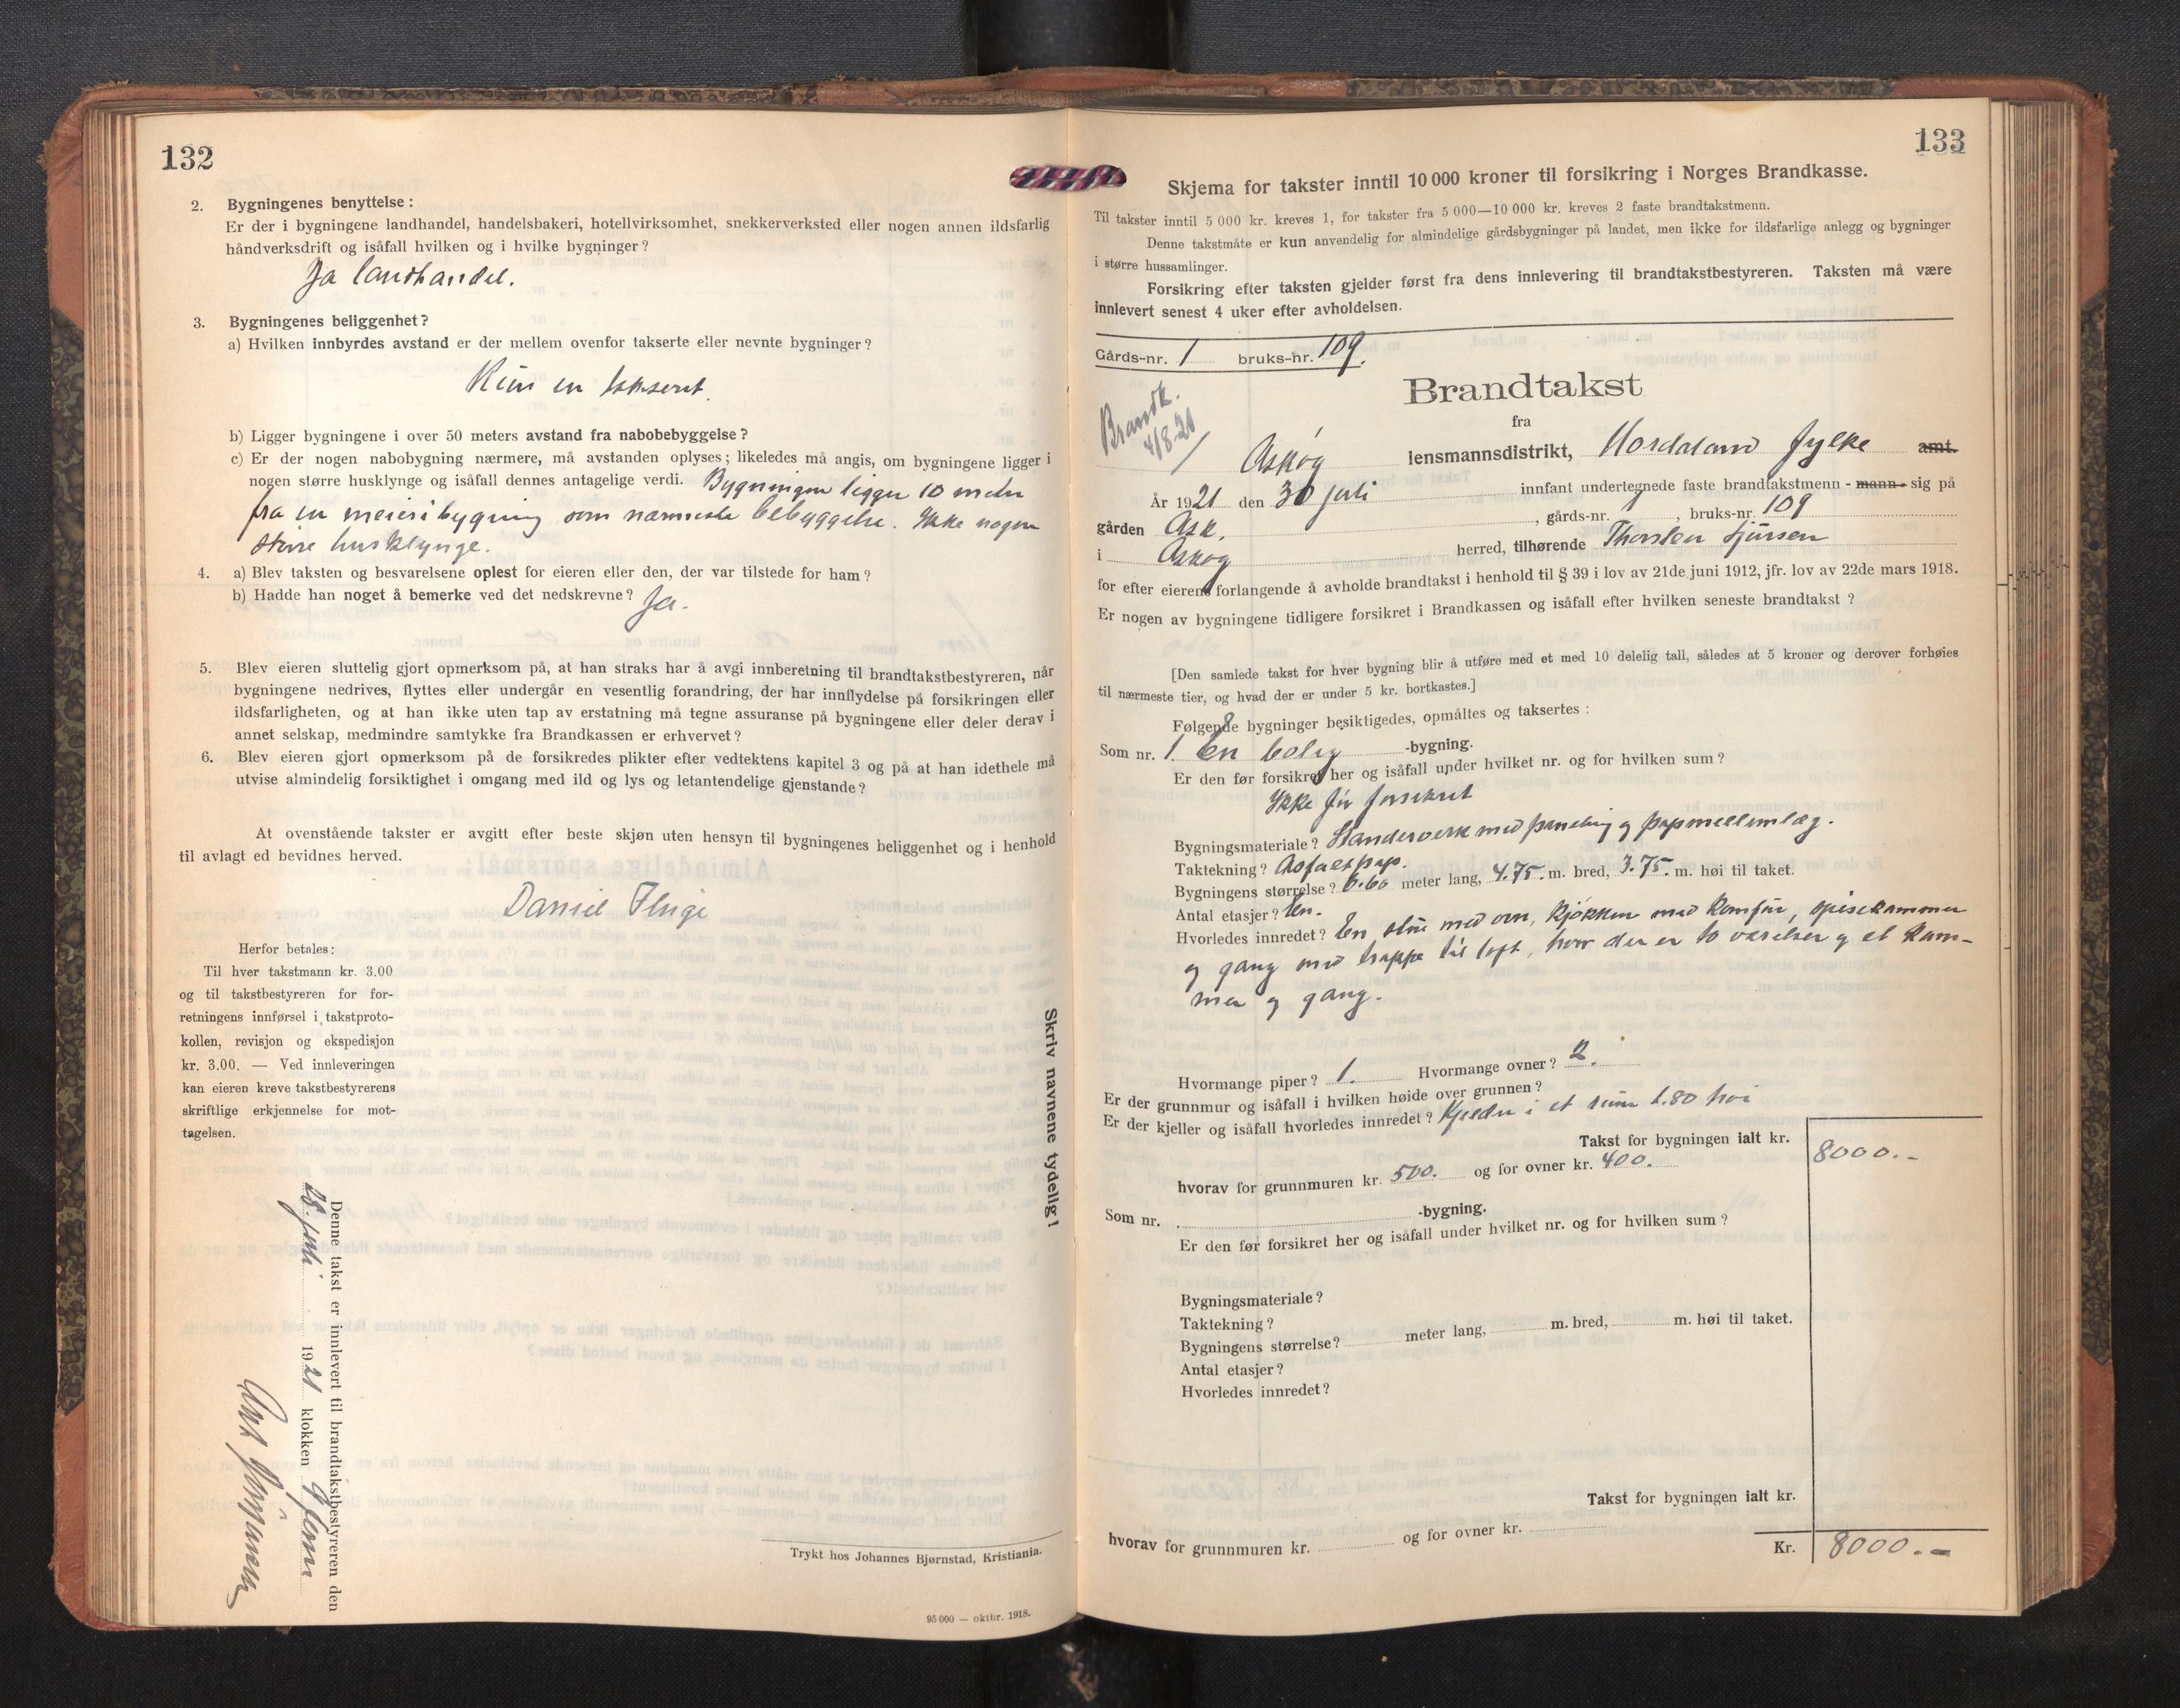 132
2. Bygningenes benyttelse:
Er der i bygningene landhandel, handelsbakeri, hotellvirksomhet, snekkerverksted eller nogen annen ildsfarlig
håndverksdrift og isåfall hvilken og i hvilke bygninger?
Ja landhandel.
3. Bygningenes beliggenhet?
a) Hvilken innbyrdes avstand er der mellem ovenfor takserte eller nevnte bygninger?
Kun en taksert.
b) Ligger bygningene i over 50 meters avstand fra nabobebyggelse?
c) Er der nogen nabobygning nærmere, må avstanden oplyses; likeledes må angis, om bygningene ligger i
nogen større husklynge og isåfall dennes antagelige verdi. Bygningen ligger 10 meter
fra en meieribygning som nærmeste bebyggelse. Ikke nogen
større husklynge.
4. a) Blev taksten og besvarelsene oplest for eieren eller den, der var tilstede for ham?
b) Hadde han noget å bemerke ved det nedskrevne? Ja.
5. Blev eieren sluttelig gjort opmerksom på, at han straks har å avgi innberetning til brandtakstbestyreren, når
bygningene nedrives, flyttes eller undergår en vesentlig forandring, der har innflydelse på forsikringen eller
ildsfarligheten, og at han ikke uten tap av erstatning må tegne assuranse på bygningene eller deler derav i
annet selskap, medmindre samtykke fra Brandkassen er erhvervet?
6. Blev eieren gjort opmerksom på de forsikredes plikter efter vedtektens kapitel 3 og på at han idethele må
utvise almindelig forsiktighet i omgang med ild og lys og letantendelige gjenstande?
At ovenstående takster er avgitt efter beste skjøn uten hensyn til bygningenes beliggenhet og i henhold
til avlagt ed bevidnes herved.
Daniel
Herfor betales:
Til hver takstmann kr. 3.00
og til takstbestyreren for for-
retningens innførsel i takstproto-
kollen, revisjon og ekspedisjon
kr. 3.00. — Ved innleveringen
kan eieren kreve takstbestyrerens
skriftlige erkjennelse for mot-
tagelsen.
Skriv navnene tydelig!
Denne takst er innlevert til brandtakstbestyreren den
28. juli 1921 klokken 9 fm
Trykt hos Johannes Bjørnstad, Kristiania.
95 000 — oktbr. 1918.
133
Skjema for takster inntil 10 000 kroner til forsikring i Norges Brandkasse.
Til takster inntil 5 000 kr. kreves 1, for takster fra 5 000—10 000 kr. kreves 2 faste brandtakstmenn.
Denne takstmåte er kun anvendelig for almindelige gårdsbygninger på landet, men ikke for ildsfarlige anlegg og bygninger
i større hussamlinger.
Forsikring efter taksten gjelder først fra dens innlevering til brandtakstbestyreren. Taksten må være
innlevert senest 4 uker efter avholdelsen.
Gårds-nr. 1 bruks-nr. 109.
Brandk.
4/8-21
Brandtakst
fra
Askøy lensmannsdistrikt, Hordaland fylke amt.
År 1921 den 30 juli innfant undertegnede faste brandtakstmenn - mann - sig på
gården Ask, gårds-nr. 1, bruks-nr. 109
i Askøy herred, tilhørende Thorsten Sjursen
for efter eierens forlangende å avholde brandtakst i henhold til § 39 i lov av 21de juni 1912, jfr. lov av 22de mars 1918.
Er nogen av bygningene tidligere forsikret i Brandkassen og isåfall efter hvilken seneste brandtakst?
[Den samlede takst for hver bygning blir å utføre med et med 10 delelig tall, således at 5 kroner og derover forhøies
til nærmeste tier, og hvad der er under 5 kr. bortkastes.]
Følgende bygninger besiktigedes, opmåltes og taksertes:
Som nr. 1. En bolig -bygning.
Er den før forsikret her og isåfall under hvilket nr. og for hvilken sum?
Ikke før forsikret
Bygningsmateriale? Standerverk med paneling og papmellemlæg.
Taktekning? Asfaltpap.
Bygningens størrelse? 6.60 meter lang, 4.75. m. bred, 3.75. m. høi til taket.
Antal etasjer? En.
Hvorledes innredet? En stue med ovn, kjøkken med komfur, spisekammer
og gang med trappe til loft, hvor der er to værelser og et kam-
mer og gang.
Hvormange piper? 1. Hvormange ovner? 2.
Er der grunnmur og isåfall i hvilken høide over grunnen?
Er der kjeller og isåfall hvorledes innredet? Kjelder i et rum 1.80 høi
Takst for bygningen ialt kr. 8000.-
hvorav for grunnmuren kr. 500. og for ovner kr. 400.
Som nr. -bygning.
Er den før forsikret her og isåfall under hvilket nr. og for hvilken sum?
Bygningsmateriale?
Taktekning?
Bygningens størrelse? meter lang, m. bred, m. høi til taket.
Antal etasjer?
Hvorledes innredet?
Takst for bygningen ialt kr.
hvorav for grunnmuren kr. og for ovner kr.
Kr. 8000.-